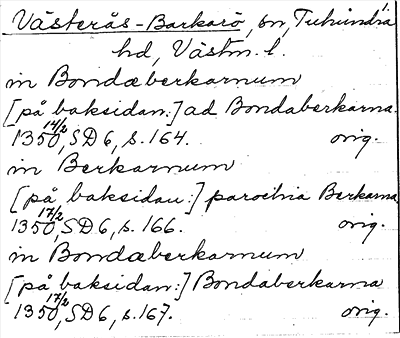 Västerås-Barkarö, sn, Tuhundra
hd, Västm. l.
in Bondæberkarnum
[på baksidan:] ad Bondaberkarna
1350 14/2, SD 6, s. 164. orig.
in Berkarnum
[på baksidan:] parochia Berkarna
1350 17/2, SD 6, s. 166. orig.
in Bondæberkarnum
[på baksidan:] Bondaberkarna
1350 17/2, SD 6, s. 167. orig.